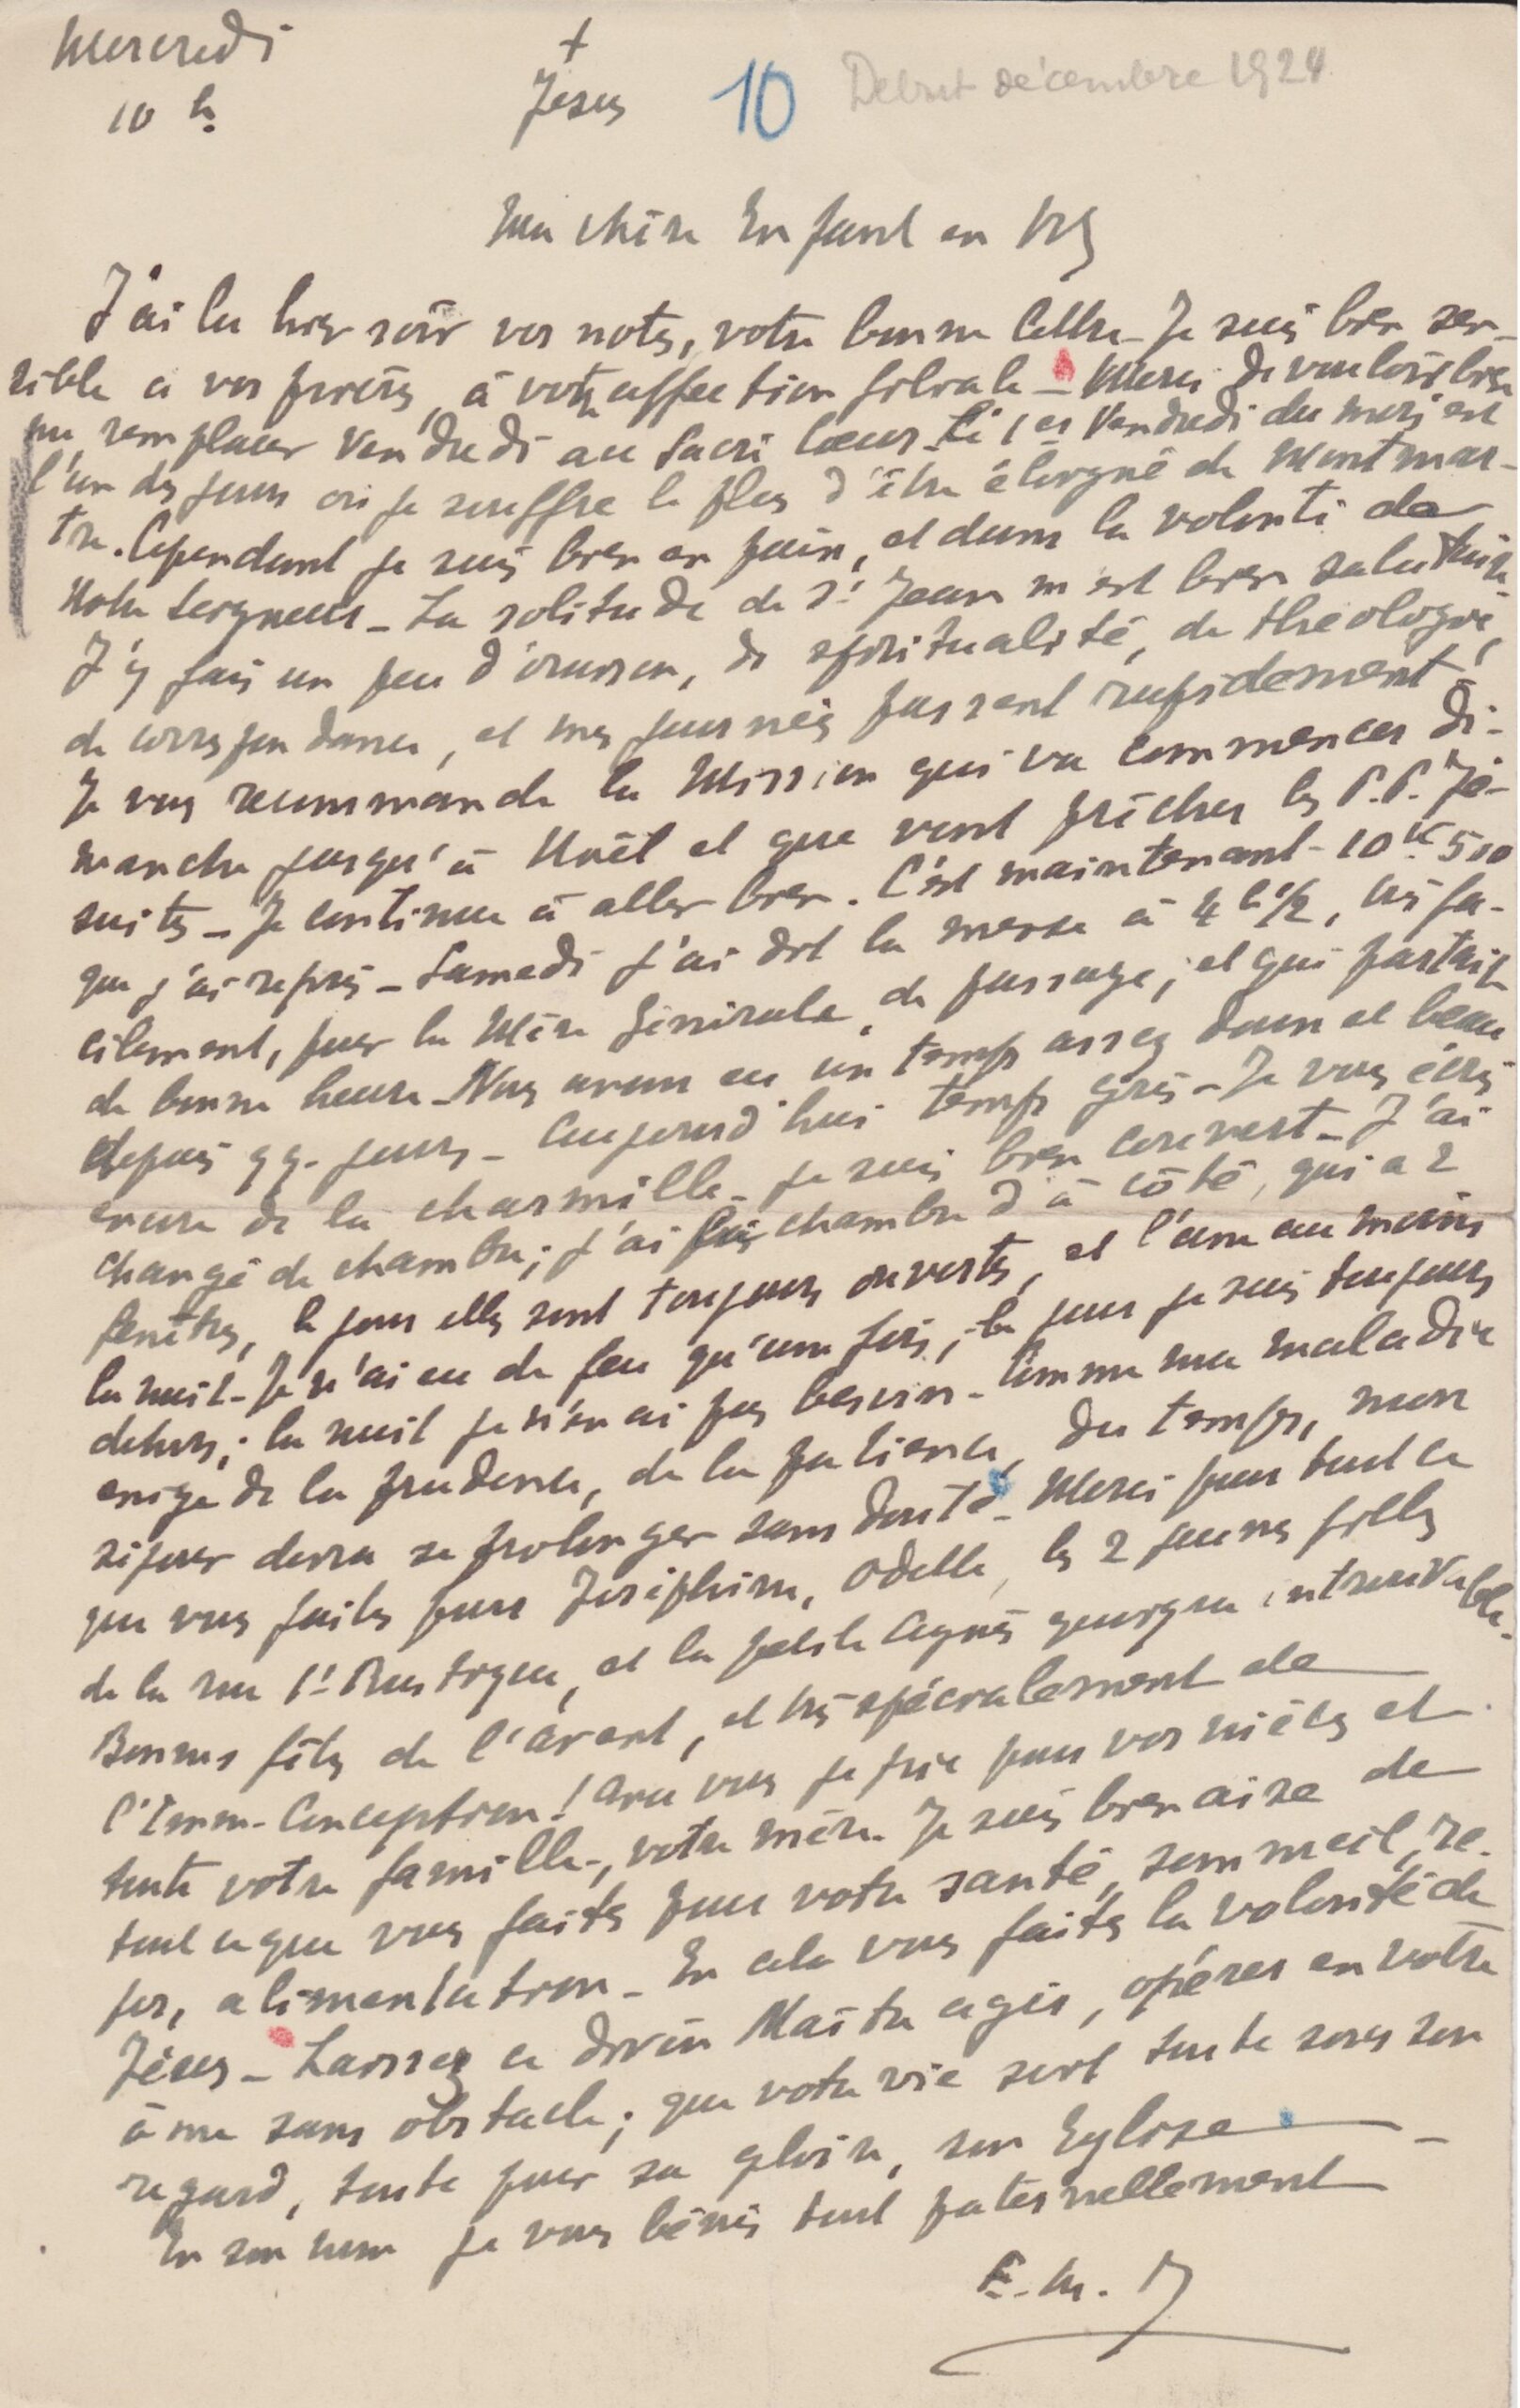 Mercredi
10 h.
+
Jésus
10
Début décembre 1924
Ma chère Enfant en NS
J'ai lu hier soir vos notes, votre bonne lettre - Je suis bien sen-
sible à vos prières, à votre affection filiale - Merci de vouloir bien
me remplacer Vendredi au Sacré Cœur - Le 1er Vendredi du mois est
l'un des jours où je souffre le plus d'être éloigné de Montmar-
tre. Cependant je suis bien en paix, et dans la volonté de
Notre Seigneur - La solitude de St Jean m'est bien salutaire
J'y fais un peu d'oraison, de spiritualité, de théologie,
de correspondance, et mes journées passent rapidement.
Je vous recommande la Mission qui va commencer Di-
manche jusqu'à Noël et que vont prêcher les P.P. Jé-
suites - Je continue à aller bien. C'est maintenant 10k 500
que j'ai repris - Samedi j'ai dit la messe à 4h 1/2, très fa-
cilement, pour la Mère Générale, de passage, et qui partait
de bonne heure - Nous avons eu un temps assez doux et beau
depuis qq. jours - Aujourd'hui temps gris - Je vous écris
encore de la charmille - je suis bien couvert - J'ai
changé de chambre; j'ai pris chambre d'à côté, qui a 2
fenêtres, le jour elles sont toujours ouvertes, et l'une au moins
la nuit - Je n'ai eu de feu qu'une fois; le jour je suis toujours
dehors; la nuit je n'en ai pas besoin - Comme ma maladie
exige de la prudence, de la patience, du temps, mon
séjour devra se prolonger sans doute - Merci pour tout ce
que vous faites pour Joséphine, Odette, les 2 jeunes filles
de la rue St Rustique, et la petite Agnès quoique introuvable.
Bonnes fêtes de l'Avent, et très spécialement de
l'Imm-Conception! Avec vous je prie pour vos nièces et
toute votre famille, votre mère. Je suis bien aise de
tout ce que vous faites pour votre santé, sommeil, re-
pos, alimentation - En cela vous faites la volonté de
Jésus - Laissez ce divin Maître agir, opérer en votre
âme sans obstacle; que votre vie soit toute sous son
regard, toute pour sa gloire, son Eglise -
En son nom je vous bénis tout paternellement
E. M.